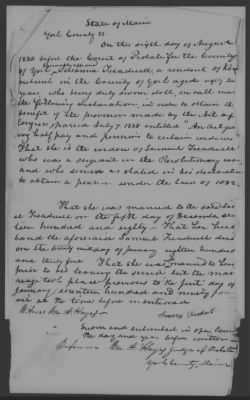 State of Maine
York County SS.
On the sixth day of August
1838 before the Court of Probate for the County
of York personally appeared Susanna Treadwell a resident of
in the County of York aged eighty
years who being duly sworn doth, on oath make
the following declaration, in order to obtain the
benefit of the provision made by the Act of
Congress passed July 7, 1838 entitled An Act gran
ing half pay and pension to certain widows
That she is the widow of Samuel Treadwell
who was a sergeant in the Revolutionary war
and who served as stated in his declaration
to obtain a pension under the Law of 1832.
That she was married to the said Samu
el Treadwell on the fifth day of December seven
teen hundred and eighty. That her hus
band the aforesaid Samuel Treadwell died
on the day of January eighteen hundred
and thirty five That she was married to him
prior to his leaving the service but the mar
riage took place previous to the first day of
January, seventeen hundred and ninety four
viz at the time before mentioned
Witness Wm A. Hayes
Sworn and subscribed in open Court
the day and year before written
Before me Wm A. Hayes Judge of Probate
York County, Maine